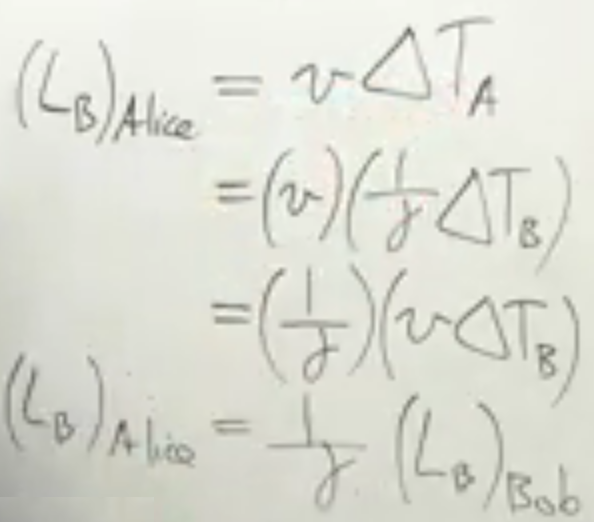 (L_B)_Alice = v△T_A
= (v)(1/γ △T_B)
= (1/γ)(v△T_B)
(L_B)_Alice = 1/γ (L_B)_Bob